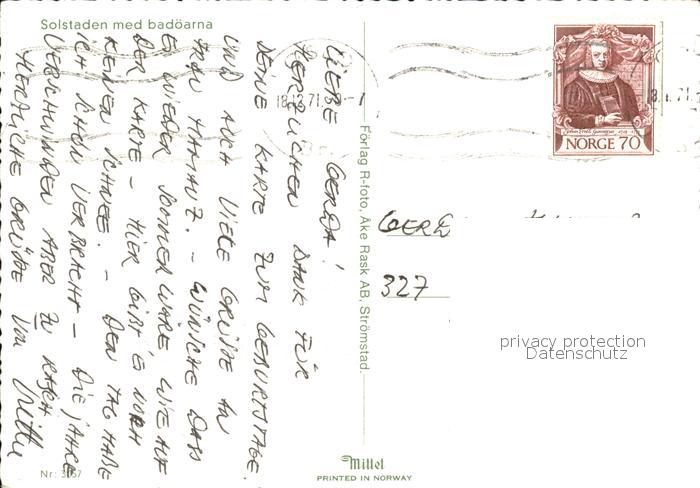 Solstaden med badöarna
LIEBE GERDA!
HERZLICHEN DANK FÜR
DEINE KARTE ZUM GEBURTSTAGE.
UND AUCH VIELE GRÜßE AN
FRAU - WÜNSCHE DASS
ES WIEDER SOMMER WÄRE WIE AUF
DER KARTE - HIER GIBT'S NOCH
KEINEN SCHNEE. - DEN TAG HABE
ICH SCHON VERBRACHT - DIE JAHRE
VERSCHWINDEN ABER ZU RASCH
HERZLICHE GRÜßE VON
Nr: 3067
Förlag R-foto, Åke Rask AB, Strömstad.
Mittet
PRINTED IN NORWAY
NORGE 70
18. 71.
GERD
327
privacy protection
Datenschutz